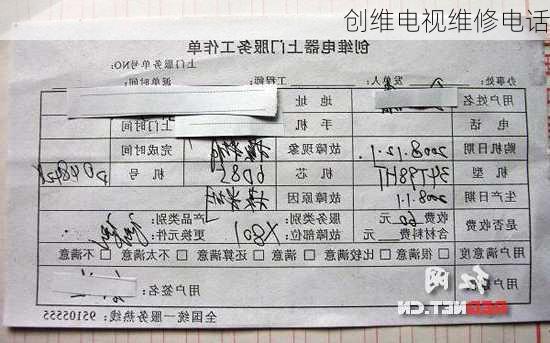 创维电视维修电话
创维电器上门服务工作单
上门服务单号NO:
办事处: 发单人: 工程师: 派单时间:
用户姓名 地址
电话 手机 上门时间
购机日期 2008.12.1 故障现象 完成时间
机型 机芯 6D82 机号
生产日期 2008.1.1 故障原因
是否收费 收费 60 元 服务类别: 产品类别:
含材料费 元 故障部位: X801 更换元件:
用户满意度 □很满意 □比较满意 □还算满意 □不太满意 □不满意
用户签名:
红网
REDNET.CN
全国统一服务热线：95105555